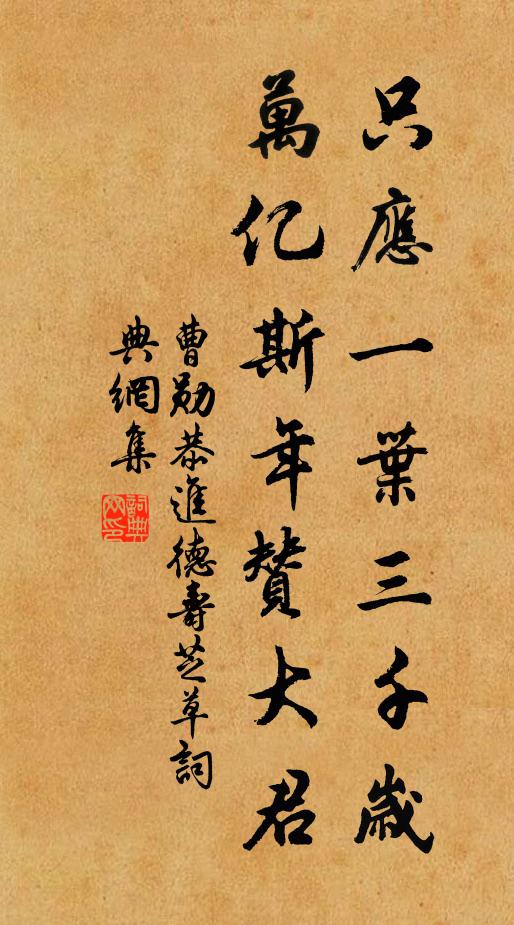 只應一葉三千歲
萬亿斯年贊大君
曹勛恭進德壽芝草詞
典網集
詞典網印